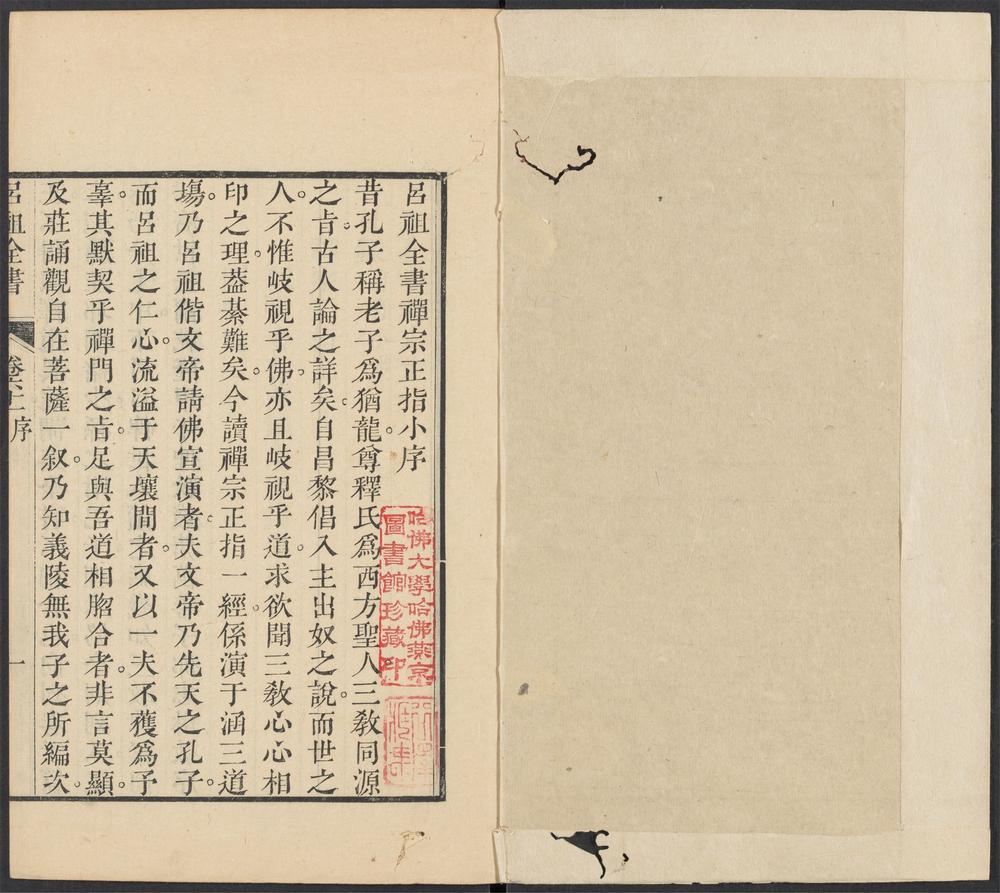 呂祖全書禪宗正指小序
昔孔子稱老子爲猶龍尊釋氏爲西方聖人三敎同源
之㫖古人論之詳矣自昌黎倡入主出奴之說而世之
人不惟岐視乎佛亦且岐視乎道求欲聞三敎心心相
印之理葢綦難矣今讀禪宗正指一經係演于涵三道
塲乃呂祖偕文帝請佛宣演者夫文帝乃先天之孔子
而呂祖之仁心流溢于天壤間者又以一夫不獲爲予
辜其默契乎禪門之㫖足與吾道相脗合者非言莫顯
及莊誦觀自在菩薩一叙乃知義陵無我子之所編次
呂祖全書
序
一
哈佛大學哈佛燕京
圖書館珍藏印